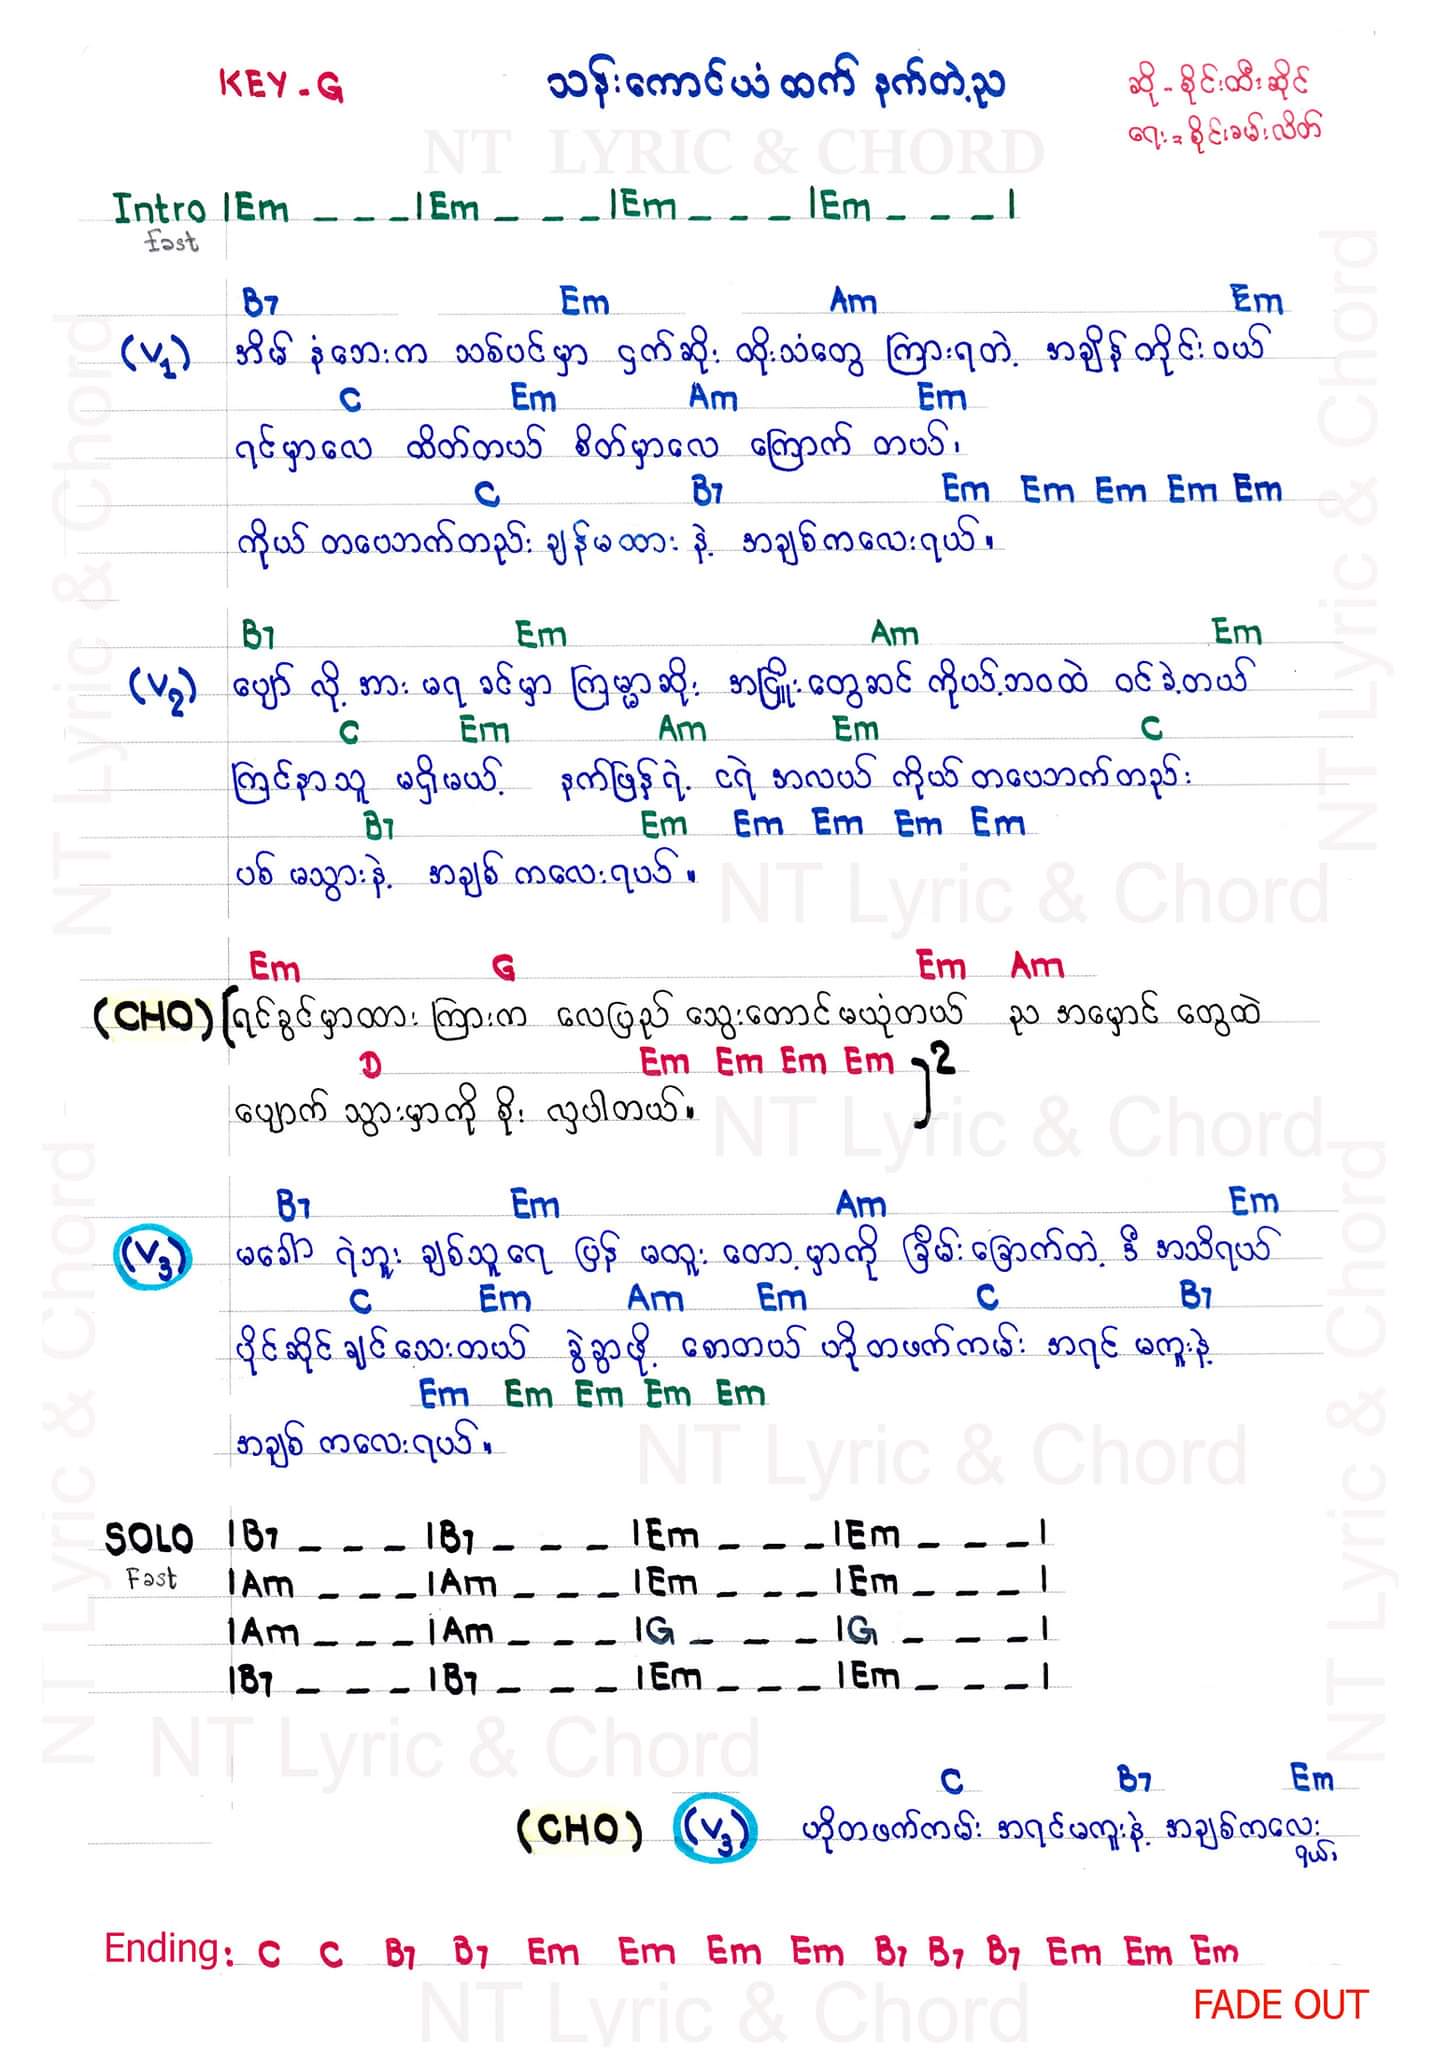 KEY-G
သန်းကောင်ယံထက် နက်တဲ့ည
ဆို - စိုင်းထီးဆိုင်
ရေး = စိုင်းခမ်းလိတ်
NT LYRIC & CHORD
Intro |Em _ _ _|Em _ _ _|Em _ _ _|Em _ _ _|
fast
B7 Em Am Em
(V1) အိမ် နံဘေးက သစ်ပင်မှာ ငှက်ဆိုး ထိုးသံတွေ ကြားရတဲ့ အချိန်တိုင်းဝယ်
C Em Am Em
ရင်မှာလေ ထိတ်တယ် စိတ်မှာလေ ကြောက် တယ်၊
C B7 Em Em Em Em Em
ကိုယ် တယောက်တည်း ချန်မထား နဲ့ အချစ်ကလေးရယ်။
B7 Em Am Em
(V2) ပျော် လို့ အား မရ ခင်မှာ ကြမ္မာဆိုး အငြှိုးတွေဆင် ကိုယ့်ဘဝထဲ ဝင်ခဲ့တယ်
C Em Am Em C
ကြင်နာသူ မရှိမယ့် နက်ဖြန်ရဲ့ ငရဲ အလယ် ကိုယ် တယောက်တည်း
B7 Em Em Em Em Em
ပစ် မသွားနဲ့ အချစ် ကလေးရယ်။
NT Lyric & Chord
Em G Em Am
(CHO) [ရင်ခွင်မှာထား ကြားက လေပြည် သွေးတောင်မယုံတယ် ည အမှောင် တွေထဲ
D Em Em Em Em ]2
ပျောက် သွားမှာကို စိုး လှပါတယ်။
NT Lyric & Chord
B7 Em Am Em
(V3) မခေါ် ရဲဘူး ချစ်သူရေ ပြန် မထူး တော့မှာကို ခြိမ်းခြောက်တဲ့ ဒီ အသိရယ်
C Em Am Em C B7
ပိုင်ဆိုင်ချင်သေးတယ် ခွဲခွာဖို့ စောတယ် ဟိုတဖက်ကမ်း အရင် မကူးနဲ့
Em Em Em Em Em
အချစ် ကလေးရယ်။
NT Lyric & Chord
SOLO |B7 _ _ _|B7 _ _ _|Em _ _ _|Em _ _ _|
Fast |Am _ _ _|Am _ _ _|Em _ _ _|Em _ _ _|
|Am _ _ _|Am _ _ _|G _ _ _|G _ _ _|
|B7 _ _ _|B7 _ _ _|Em _ _ _|Em _ _ _|
NT Lyric & Chord
C B7 Em
(CHO) (V3) ဟိုတဖက်ကမ်း အရင်မကူးနဲ့ အချစ်ကလေး
ရယ်၊
Ending: C C B7 B7 Em Em Em Em B7 B7 B7 Em Em Em
NT Lyric & Chord
FADE OUT
NT Lyric & Chord
NT Lyric & Chord
NT Lyric & Chord
NT Lyric & Chord